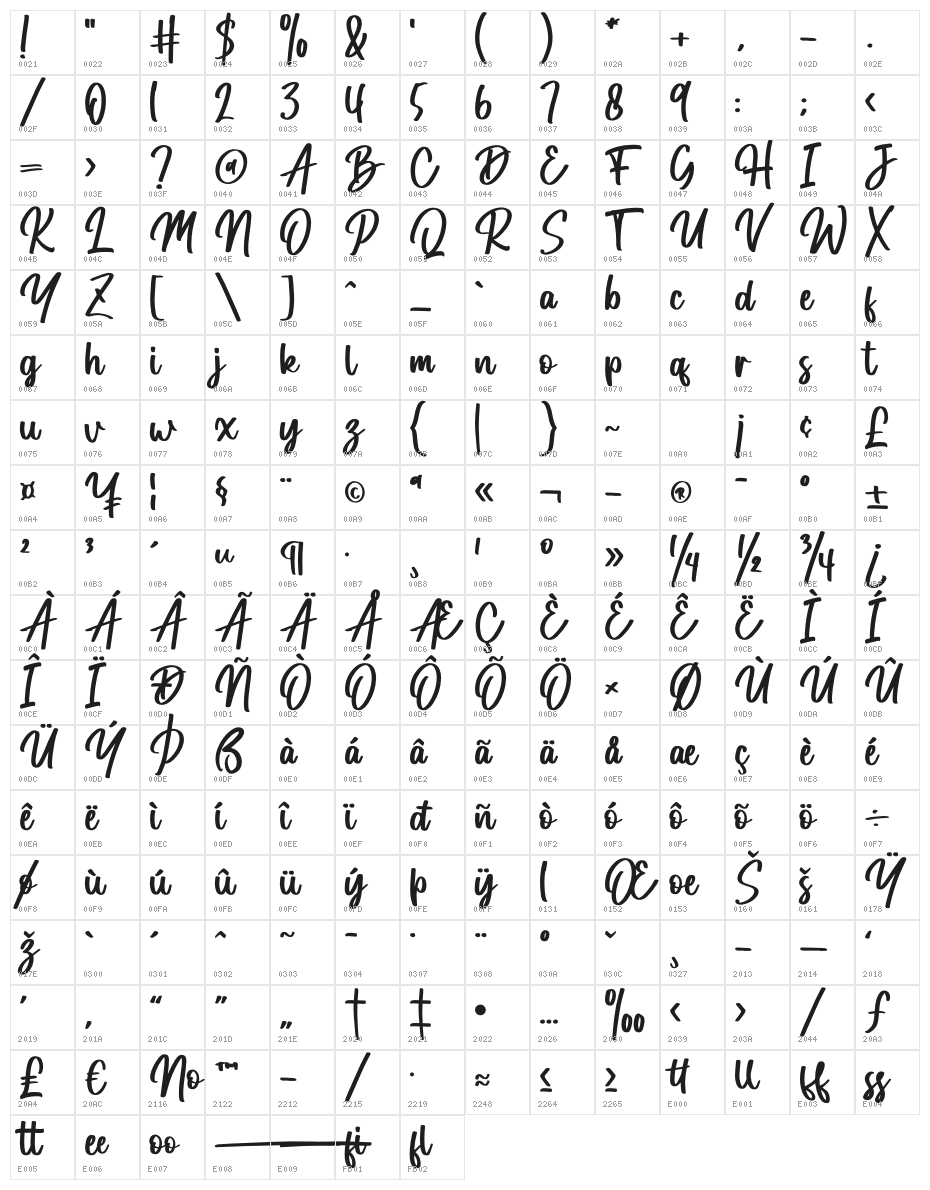 ! " # $ % & ' ( ) * + , - .
0021 0022 0023 0024 0025 0026 0027 0028 0029 002A 002B 002C 002D 002E
/ 0 1 2 3 4 5 6 7 8 9 : ; <
002F 0030 0031 0032 0033 0034 0035 0036 0037 0038 0039 003A 003B 003C
= > ? @ A B C D E F G H I J
003D 003E 003F 0040 0041 0042 0043 0044 0045 0046 0047 0048 0049 004A
K L M N O P Q R S T U V W X
004B 004C 004D 004E 004F 0050 0051 0052 0053 0054 0055 0056 0057 0058
Y Z [ \ ] ^ _ ` a b c d e f
0059 005A 005B 005C 005D 005E 005F 0060 0061 0062 0063 0064 0065 0066
g h i j k l m n o p q r s t
0067 0068 0069 006A 006B 006C 006D 006E 006F 0070 0071 0072 0073 0074
u v w x y z { | } ~ ¡ ¢ £
0075 0076 0077 0078 0079 007A 007B 007C 007D 007E 00A0 00A1 00A2 00A3
¤ ¥ ¦ § ¨ © ª « ¬ - ® ¯ ° ±
00A4 00A5 00A6 00A7 00A8 00A9 00AA 00AB 00AC 00AD 00AE 00AF 00B0 00B1
² ³ ´ µ ¶ · ¸ ¹ º » ¼ ½ ¾ ¿
00B2 00B3 00B4 00B5 00B6 00B7 00B8 00B9 00BA 00BB 00BC 00BD 00BE 00BF
À Á Â Ã Ä Å Æ Ç È É Ê Ë Ì Í
00C0 00C1 00C2 00C3 00C4 00C5 00C6 00C7 00C8 00C9 00CA 00CB 00CC 00CD
Î Ï Ð Ñ Ò Ó Ô Õ Ö × Ø Ù Ú Û
00CE 00CF 00D0 00D1 00D2 00D3 00D4 00D5 00D6 00D7 00D8 00D9 00DA 00DB
Ü Ý Þ ß à á â ã ä å æ ç è é
00DC 00DD 00DE 00DF 00E0 00E1 00E2 00E3 00E4 00E5 00E6 00E7 00E8 00E9
ê ë ì í î ï ð ñ ò ó ô õ ö ÷
00EA 00EB 00EC 00ED 00EE 00EF 00F0 00F1 00F2 00F3 00F4 00F5 00F6 00F7
ø ù ú û ü ý þ ÿ ı Œ œ Š š Ÿ
00F8 00F9 00FA 00FB 00FC 00FD 00FE 00FF 0131 0152 0153 0160 0161 0178
ž ̀ ́ ̂ ̃ ̄ ̇ ̈ ̊ ̌ ̧ – — ‘
017E 0300 0301 0302 0303 0304 0307 0308 030A 030C 0327 2013 2014 2018
’ ‚ “ ” „ † ‡ • … ‰ ‹ › ⁄ ₣
2019 201A 201C 201D 201E 2020 2021 2022 2026 2030 2039 203A 2044 20A3
₤ € № ™ − ∕ ∙ ≈ ≤ ≥ tt ll ff ss
20A4 20AC 2116 2122 2212 2215 2219 2248 2264 2265 E000 E001 E003 E004
tt ee oo fi fl
E005 E006 E007 E008 E009 FB01 FB02